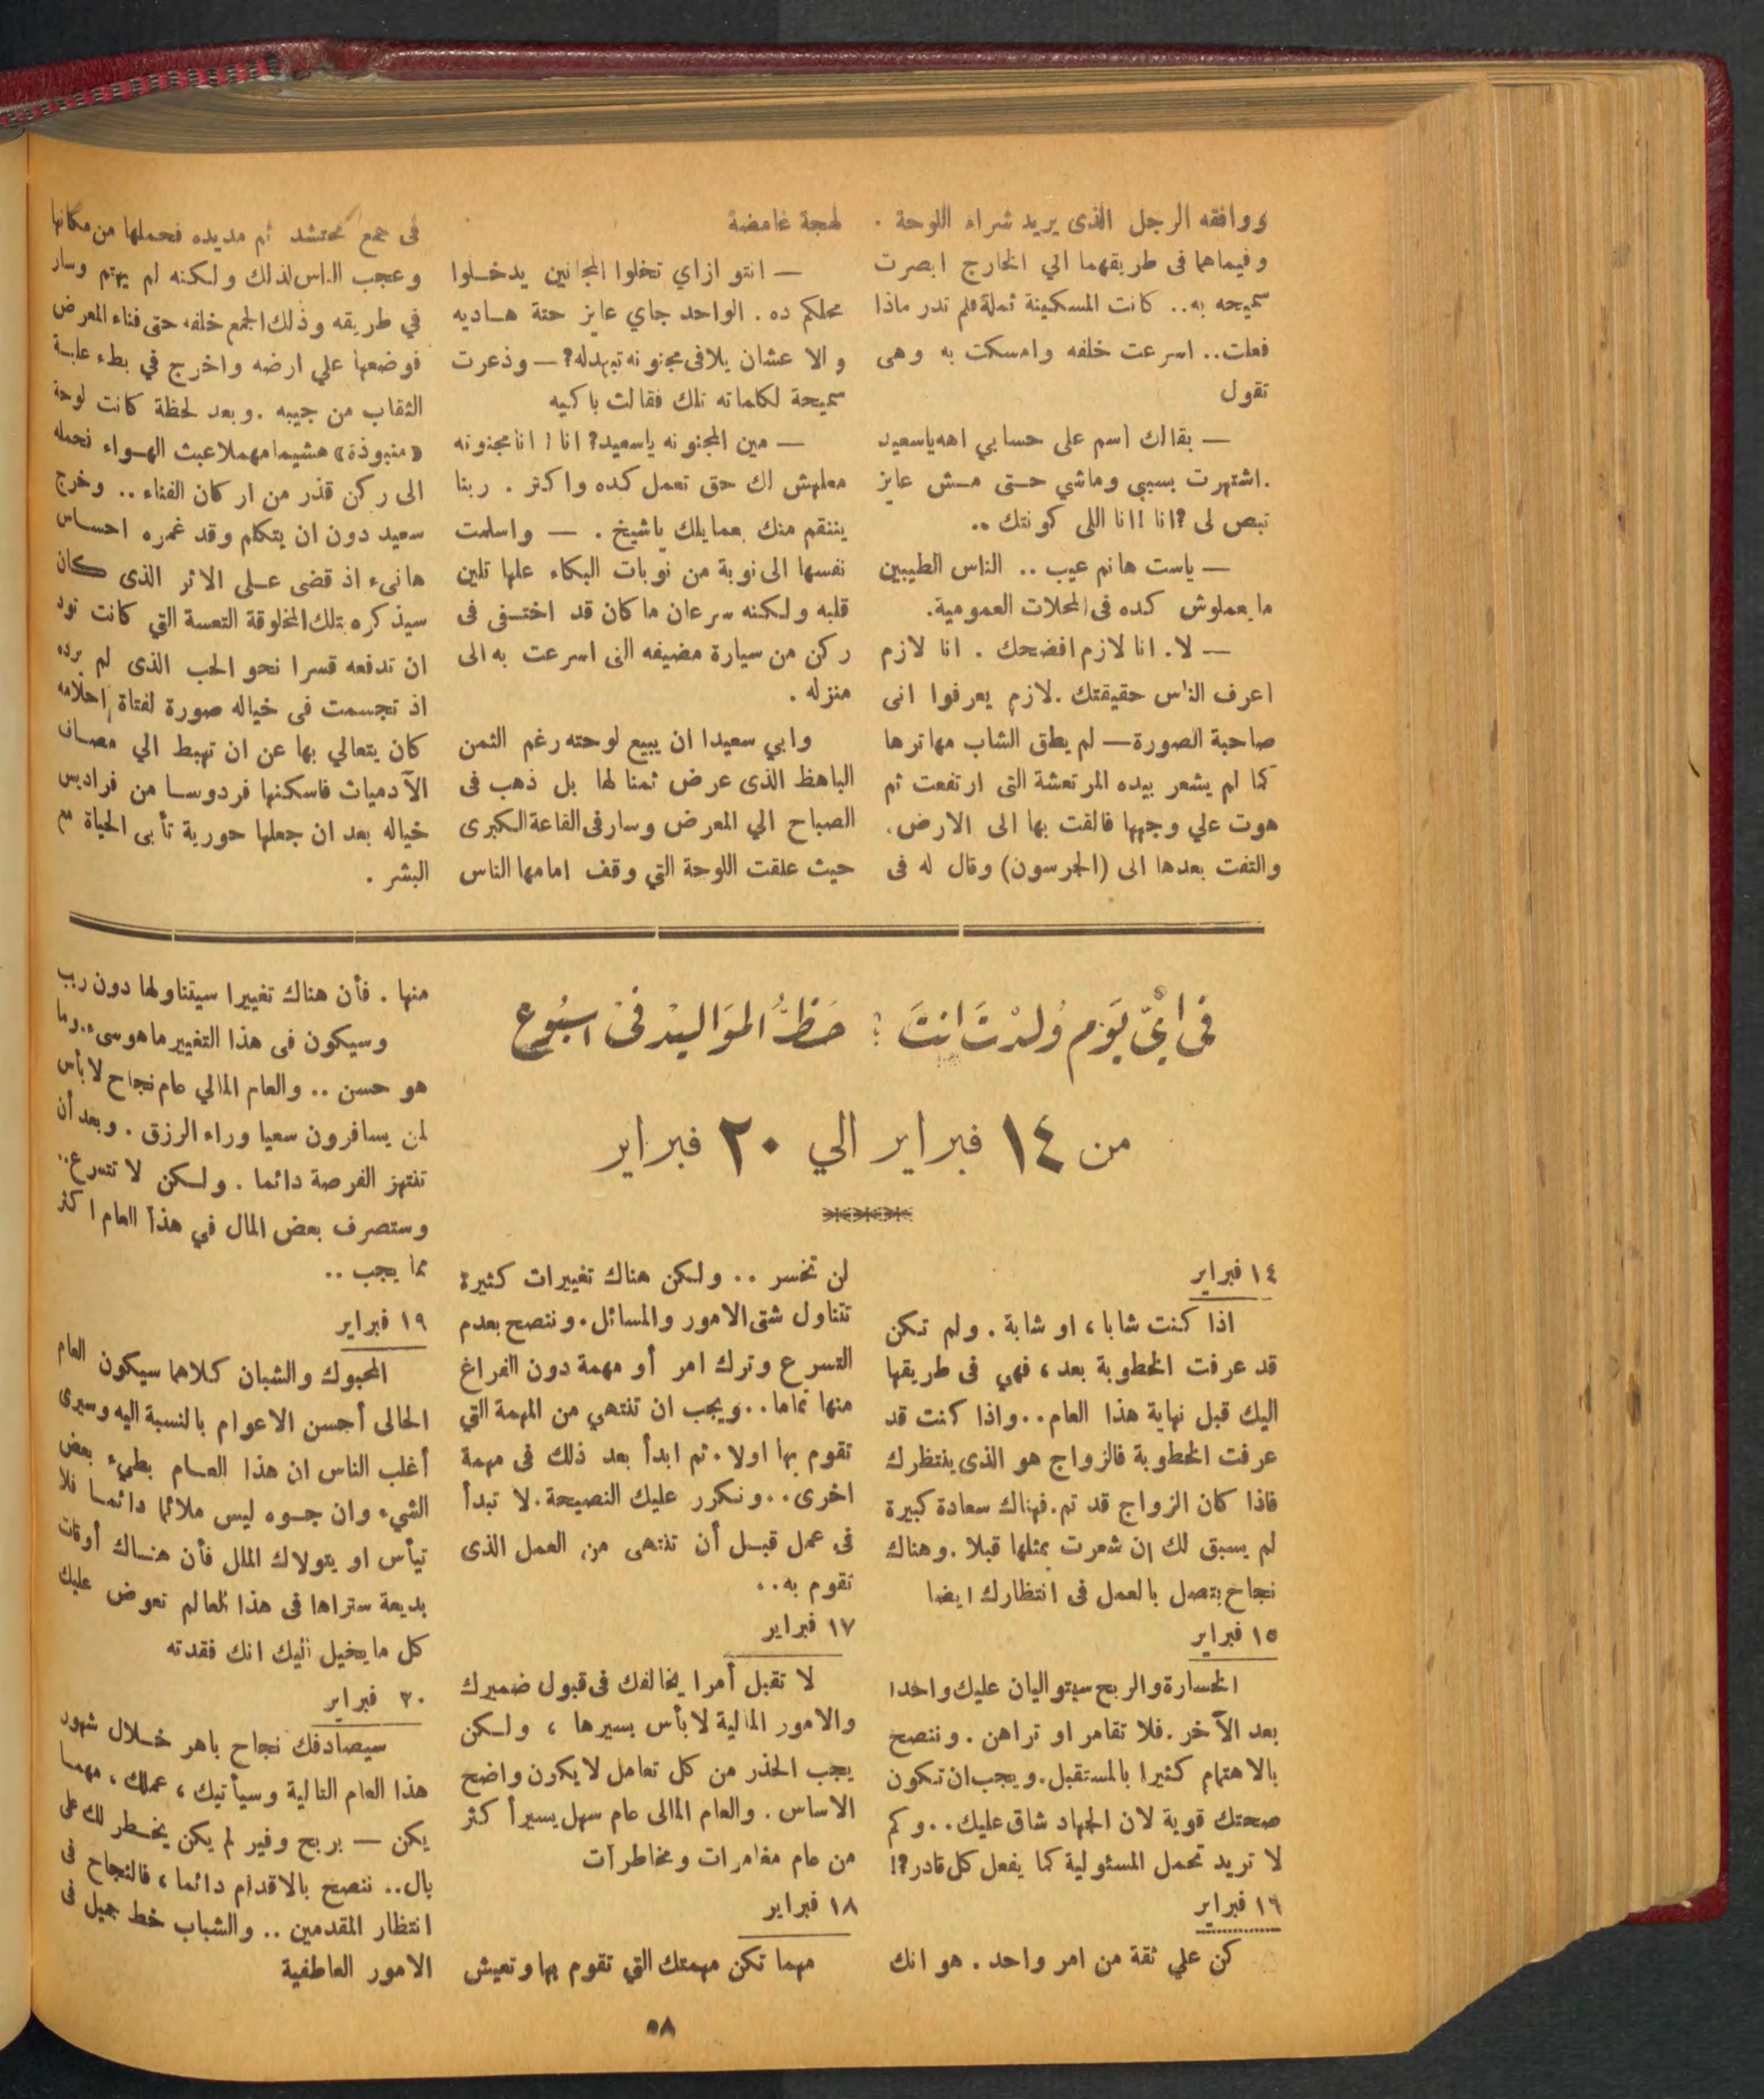 ووافقه الرجل الذى يريد شراء اللوحة .
وفيماهما فى طريقهما الي الخارج ابصرت
سميحه به.. كانت المسكينة ثملة فلم تدر ماذا
فعلت.. اسرعت خلفه وامسكت به وهى
تقول
— بقالك اسم على حسابي اهه ياسعيد
.اشتهرت بسببي وماشي حتى مش عايز
تبص لى ?انا !انا اللى كونتك ..
— ياست هانم عيب .. الناس الطيبين
مايعملوش كده فى المحلات العمومية.
— لا. انا لازم افضحك . انا لازم
اعرف الناس حقيقتك .لازم يعرفوا انى
صاحبة الصورة— لم يطق الشاب مهاترها
كما لم يشعر بيده المرتعشة التى ارتفعت ثم
هوت علي وجهها فالقت بها الى الارض.
والتفت بعدها الى (الجرسون) وقال له فى
لهجة غامضة
— انتو ازاي تخلوا المجانين يدخلوا
محلكم ده . الواحد جاي عايز حتة هاديه
والا عشان يلاقى مجنونه تبهدله?— وذعرت
سميحة لكلماته تلك فقالت باكيه
— مين المجنونه ياسعيد? انا ! انا مجنونه
معلهش لك حق تعمل كده واكتر . ربنا
ينتقم منك بعمايلك ياشيخ . — واسلمت
نفسها الى نوبة من نوبات البكاء علها تلين
قلبه ولكنه سرعان ماكان قد اختفى فى
ركن من سيارة مضيفه التى اسرعت به الى
منزله .
وابي سعيدا ان يبيع لوحته رغم الثمن
الباهظ الذى عرض ثمنا لها بل ذهب فى
الصباح الي المعرض وسارفى القاعة الكبرى
حيث علقت اللوحة التي وقف امامها الناس
فى جمع محتشد ثم مد يده فحملها من مكانها
وعجب الناس لذلك ولكنه لم يهتم وسار
في طريقه وذلك الجمع خلفه حتى فناء المعرض
فوضعها علي ارضه واخرج في بطء علبة
الثقاب من جيبه .وبعد لحظة كانت لوحة
«منبوذة» هشيما مهملا عبث الهواء تحمله
الى ركن قذر من اركان الفناء .. وخرج
سعيد دون ان يتكلم وقد غمره احساس
هانىء اذ قضى على الاثر الذى كان
سيذكره بتلك المخلوقة التعسة التي كانت تود
ان تدفعه قسرا نحو الحب الذى لم يرده
اذ تجسمت فى خياله صورة لفتاة احلامه
كان يتعالي بها عن ان تهبط الي مصاف
الآدميات فاسكنها فردوسا من فراديس
خياله بعد ان جعلها حورية تأبى الحياة مع
البشر .
فى اىّ يوم ولدت انت ؟ حظ المواليد فى اسبوع
من ١٤ فبراير الي ٢٠ فبراير
١٤ فبراير
اذا كنت شابا ، او شابة . ولم تكن
قد عرفت الخطوبة بعد ، فهي فى طريقها
اليك قبل نهاية هذا العام..واذا كنت قد
عرفت الخطوبة فالزواج هو الذى ينتظرك
فاذا كان الزواج قد تم.فهناك سعادة كبيرة
لم يسبق لك ان شعرت بمثلها قبلا .وهناك
نجاح يتصل بالعمل فى انتظارك ايضا
١٥ فبراير
الخسارة والربح سيتواليان عليك واحدا
بعد الآخر.فلا تقامر او تراهن . وننصح
بالاهتمام كثيرا بالمستقبل.ويجب ان تكون
صحتك قوية لان الجهاد شاق عليك..وكم
لا تريد تحمل المسئولية كما يفعل كل قادر?!
١٦ فبراير
كن علي ثقة من امر واحد . هو انك
لن تخسر .. ولكن هناك تغييرات كثيرة
تتناول شتى الامور والمسائل.وننصح بعدم
التسرع وترك امر أو مهمة دون الفراغ
منها تماما..ويجب ان تنتهي من المهمة التي
تقوم بها اولا.ثم ابدأ بعد ذلك فى مهمة
اخرى..ونكرر عليك النصيحة.لا تبدأ
فى عمل قبل أن تنتهى من العمل الذى
تقوم به..
١٧ فبراير
لا تقبل أمرا يخالفك فى قبول ضميرك
والامور المالية لابأس بسيرها ، ولكن
يجب الحذر من كل تعامل لايكون واضح
الاساس . والعام المالى عام سهل يسير أكثر
من عام مغامرات ومخاطرات
١٨ فبراير
مهما تكن مهمتك التي تقوم بها وتعيش
منها . فأن هناك تغييرا سيتناولها دون ريب
وسيكون فى هذا التغيير ماهو سىء.وما
هو حسن .. والعام المالي عام نجاح لابأس
لمن يسافرون سعيا وراء الرزق . وبعد أن
تنتهز الفرصة دائما . ولكن لا تتسرع..
وستصرف بعض المال في هذا العام اكثر
مما يجب ..
١٩ فبراير
المحبوك والشبان كلاهما سيكون العام
الحالى أحسن الاعوام بالنسبة اليه وسيرى
أغلب الناس ان هذا العام بطيء بعض
الشيء وان جوه ليس ملائما دائما فلا
تيأس او يتولاك الملل فأن هناك أوقات
بديعة ستراها فى هذا العالم تعوض عليك
كل مايخيل اليك انك فقدته
٢٠ فبراير
سيصادفك نجاح باهر خلال شهور
هذا العام التالية وسيأتيك ، عملك ، مهما
يكن — بربح وفير لم يكن يخطر لك على
بال.. ننصح بالاقدام دائما ، فالنجاح فى
انتظار المقدمين .. والشباب خط جميل فى
الامور العاطفية
٥٨